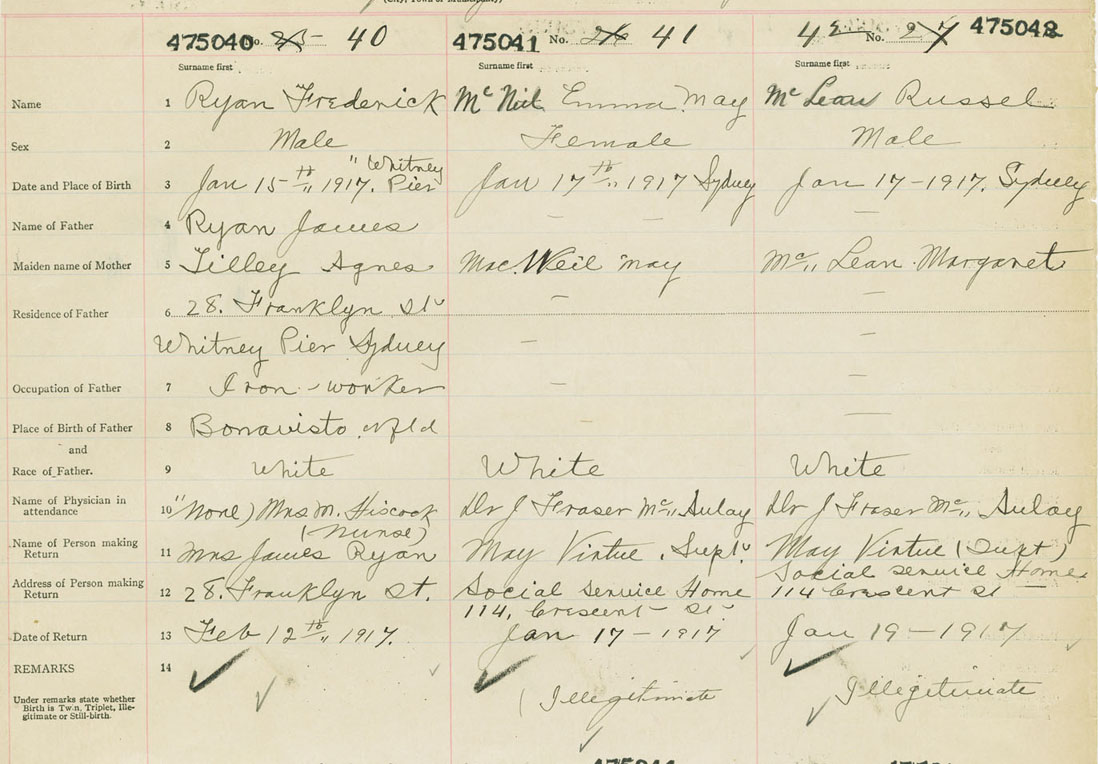 (City, Town or Municipality)
475040 No. 25 40 475041 No. 26 41 42 No. 27 475042
Surname first Surname first Surname first
Name 1 Ryan Frederick McNeil Emma May McLean Russel
Sex 2 Male Female Male
"Whitney
Date and Place of Birth 3 Jan 15th,, 1917. Pier Jan 17th,, 1917 Sydney Jan 17-1917. Sydney
Name of Father 4 Ryan James — — —
Maiden name of Mother 5 Tilley Agnes Mac.Neil May Mc,, Lean Margaret
Residence of Father 6 28. Franklyn St — 
Whitney Pier Sydney — —
Occupation of Father 7 Iron-worker — —
Place of Birth of Father 8 Bonavisto Nfld — —
and
Race of Father. 9 White White White
Name of Physician in
attendance 10 "None) Mrs M. Hiscock Dr J Fraser Mc,, Aulay Dr J Fraser Mc,, Aulay
(Nurse)
Name of Person making
Return 11 Mrs James Ryan May Virtue. Supt. May Virtue (Supt)
Address of Person making
Return 12 28. Franklyn St. Social Service Home Social Service Home
114, Crescent St 114 Crescent St —
Date of Return 13 Feb 12th,, 1917. Jan 17-1917 Jan 19-1917
REMARKS 14
Under remarks state whether
Birth is Twin, Triplet, Ille-
gitimate or Still-birth.
(Illegitimate Illegitimate